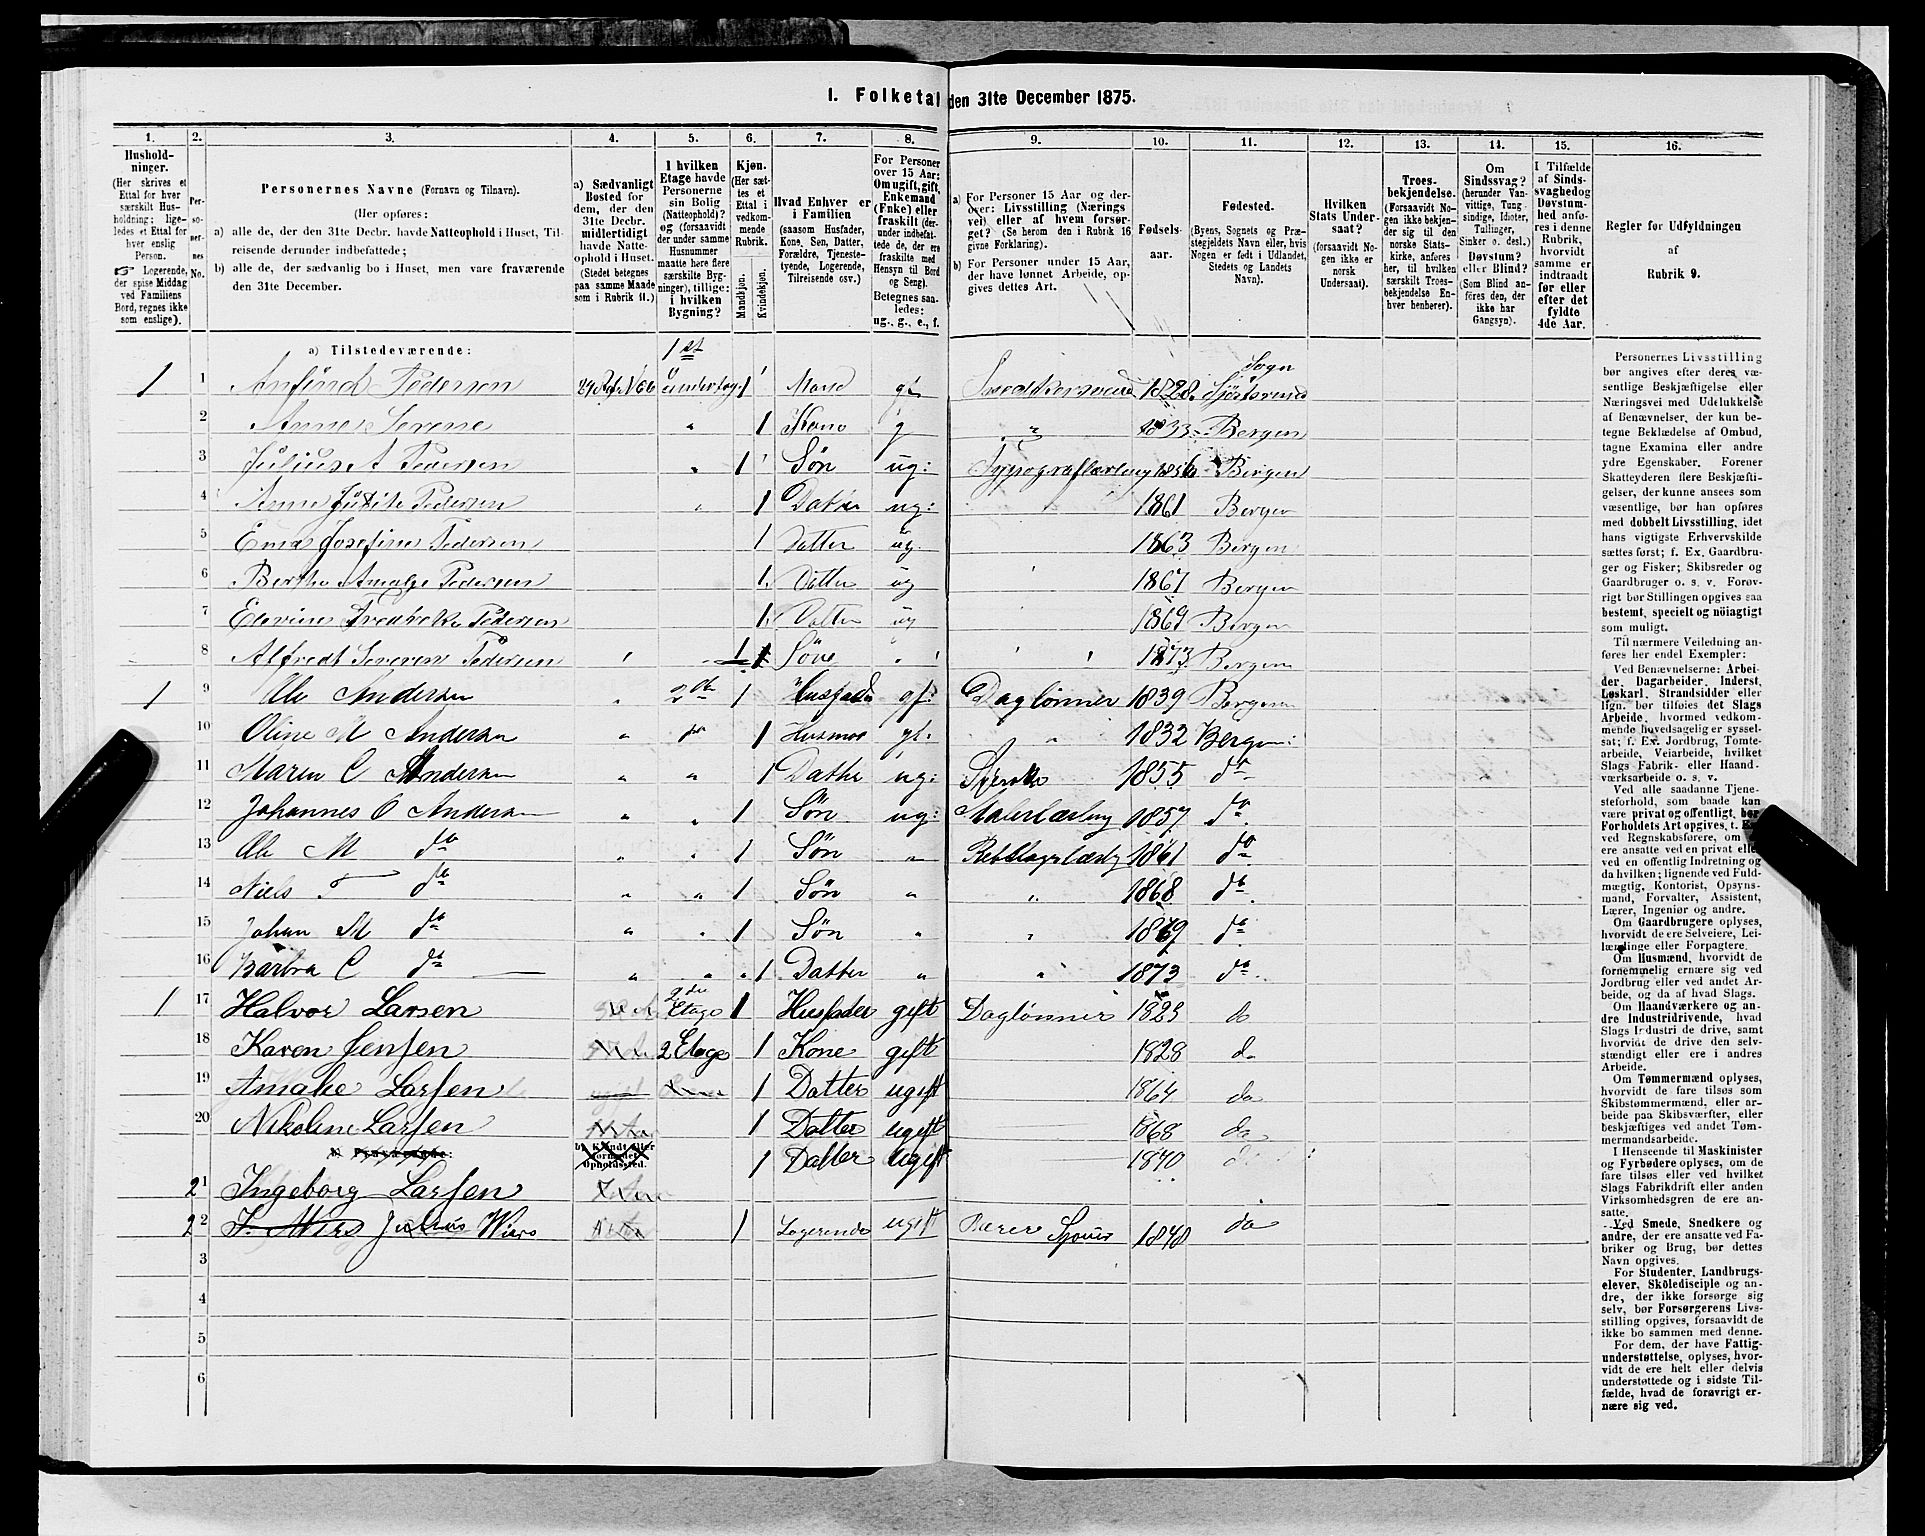 1. Folketal den 31te December 1875.
1. 2. 3. 4. 5. 6. 7. 8. 9. 10. 11. 12. 13. 14. 15. 16.
Husholdninger.
(Her skrives et
Ettal for hver
særskilt Husholdning;
ligeledes
et Ettal for
hver enslig
Person.
☞ Logerende,
der spise Middag
ved Familiens
Bord, regnes ikke
som enslige).
Personernes No.
Personernes Navne (Fornavn og Tilnavn).
(Her opføres:
a) alle de, der den 31te Decbr. havde Natteophold i Huset, Tilreisende
derunder indbefattede;
b) alle de, der sædvanlig bo i Huset, men vare fraværende
den 31te December.
a) Sædvanligt
Bosted for
dem, der den
31te Decbr.
midlertidigt
havde Natteophold
i Huset.
(Stedet betegnes
paa samme Maade
som i Rubrik 11.)
I hvilken
Etage havde
Personerne
sin Bolig
(Natteophold)?
og (forsaavidt
der under samme
Husnummer
maatte høre flere
særskilte Bygninger),
tillige:
i hvilken
Bygning?
Kjøn.
(Her sættes
et
Ettal i
vedkommende
Rubrik.
Mandkjøn.
Kvindekjøn.
Hvad Enhver er
i Familien
(saasom Husfader,
Kone, Søn, Datter,
Forældre, Tjenestetyende,
Logerende,
Tilreisende osv.)
For Personer
over 15 Aar:
Om ugift, gift,
Enkemand
(Enke) eller
fraskilt (derunder
indbefattede
de, der ere
fraskilte med
Hensyn til Bord
og Seng).
Betegnes saaledes:
ug., g., e., f.
a) For Personer 15 Aar og derover:
Livsstilling (Næringsvei)
eller af hvem forsørget?
(Se herom den i Rubrik 16
givne Forklaring).
b) For Personer under 15 Aar,
der have lønnet Arbeide, opgives
dettes Art.
Fødselsaar.
Fødested.
(Byens, Sognets og Præstegjeldets
Navn eller, hvis
Nogen er født i Udlandet,
Stedets og Landets
Navn).
Hvilken
Stats Undersaat?
(forsaavidt Nogen
ikke er
norsk
Undersaat).
Troesbekjendelse.
(Forsaavidt Nogen
ikke bekjender
sig til den
norske Statskirke,
anføres
her, til hvilken
særskilt Troesbekjendelse
Enhver
henhører).
Om
Sindssvag?
(herunder Vanvittige,
Tungsindige,
Idioter,
Tullinger,
Sinker o. desl.)
Døvstum?
eller Blind?
(Som Blind anføres
den, der
ikke har
Gangsyn).
I Tilfælde
af Sindssvaghed
og
Døvstumhed
anføres
i denne
Rubrik,
hvorvidt
samme er
indtraadt
før eller
efter det
fyldte
4de Aar.
Regler for Udfyldningen
af
Rubrik 9.
a) Tilstedeværende:
1 st
Sogn
1 1 Anfind Pedersen 1 Mand gf 1828
2 Anne Serene " 1 Kone g " 1833 Bergen
3 Julius A Pedersen " 1 Søn ug: Typograflærling 1856 Bergen
4 Anne Pedersen 1 Datter ug: 1861 Bergen
5 Ema Josefine Pedersen 1 Datter ug. 1863 Bergen
6 Berthe Amalge Pedersen 1 Datter ug 1867 Bergen
7 Elevine Fredrikke Pedersen 1 Datter ug 1869 Bergen
8 Alfredt Severen Pedersen 1 Søne " 1873 Bergen
1 9 Ole Andersen " 1 Husfader gf: Daglønner 1839 Bergen
10 Oline M Andersen " 1 Husmor gf: " 1832 Bergen
11 Maren C Andersen " " 1 Datter ug: 1855 do
12 Johannes O Andersen " " 1 Søn ug: Malerlærling 1857 do
13 Ole M do " " 1 Søn " 1861 do
14 Niels T do " " 1 Søn " " 1868 do
15 Johan M do " " 1 Søn " " 1869 do
16 Barbra C do " " 1 Datter " " 1873 do
1 17 Halvor Larsen 2de Etage 1 Husfader gift Daglønner 1823 do
18 Karen Jensen 2 Etage 1 Kone gift 1828 do
19 Amalie Larsen 1 Datter ugift 1864 do
20 Nikoline Larsen 1 Datter ugift 1868 do
b) Fraværende: b) Kjendt eller formodet Opholdssted. 1 Datter ugift 1870 do
2 1 Ingeborg Larsen
2 2 Julius Wiers 1 Logerende ugift 1848 do
3
4
5
6
Personernes Livsstilling
bør angives efter deres væsentlige
Beskjæftigelse eller
Næringsvei med Udelukkelse
af Benævnelser, der kun betegne
Beklædelse af Ombud,
tagne Examina eller andre
ydre Egenskaber. Forener
Skatteyderen flere Beskjæftigelser,
der kunne ansees som
væsentlige, bør han opføres
med dobbelt Livsstilling, idet
hans vigtigste Erhvervskilde
sættes først; f. Ex. Gaardbruger
og Fisker; Skibsreder og
Gaardbruger o. s. v. Forøvrigt
bør Stillingen opgives saa
bestemt, specielt og nöiagtigt
som muligt.
Til nærmere Veiledning anføres
her endel Exempler:
Ved Benævnelserne: Arbeider,
Dagarbeider, Inderst,
Løskarl, Strandsidder eller
lign. bør tilføies det Slags
Arbeide, hvormed vedkommende
hovedsagelig er sysselsat;
f. Ex. Jordbrug, Tomtearbeide,
Veiarbeide, hvilket
Slags Fabrik- eller Haandværksarbeide
o. s. v.
Ved alle saadanne Tjenesteforhold,
som baade kan
være privat og offentligt, bør
Forholdets Art opgives, t. Ex.
ved Regnskabsførere, om de
ere ansatte ved en privat eller
ved en offentlig Indretning og
da hvilken; lignende ved Fuldmægtig,
Kontorist, Opsynsmand,
Forvalter, Assistent,
Lærer, Ingeniør og andre.
Om Gaardbrugere oplyses,
hvorvidt de ere Selveiere, Leilændinge
eller Forpagtere.
Om Husmænd, hvorvidt de
fornemmelig ernære sig ved
Jordbrug eller ved andet Arbeide,
og da af hvad Slags.
Om Haandværkere og andre
Industridrivende, hvad
Slags Industri de drive, samt
hvorvidt de drive den selvstændigt
eller ere i andres
Arbeide.
Om Tømmermænd oplyses,
hvorvidt de fare tilsøs som
Skibstømmermænd, eller arbeide
paa Skibsværfter, eller
beskjæftiges ved andet Tømmermandsarbeide.
I Henseende til Maskinister
og Fyrbødere oplyses, om de
fare tilsøs eller ved hvilket
Slags Fabrikdrift eller anden
Virksomhedsgren de ere ansatte.
Ved Smede, Snedkere og
andre, der ere ansatte ved Fabriker
og Brug, bør dettes
Navn opgives.
For Studenter, Landbrugselever,
Skoledisciple og andre,
der ikke forsørge sig
selv, bør Forsørgerens Livsstilling
opgives, forsaavidt de
ikke bo sammen med denne.
For dem, der have Fattigunderstøttelse,
oplyses, hvorvidt
de ere helt eller delvis
understøttede og i sidste Tilfælde,
hvad de forøvrigt ernære
sig ved.